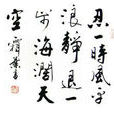 忍一時風平
浪靜退一
步海闊天
空